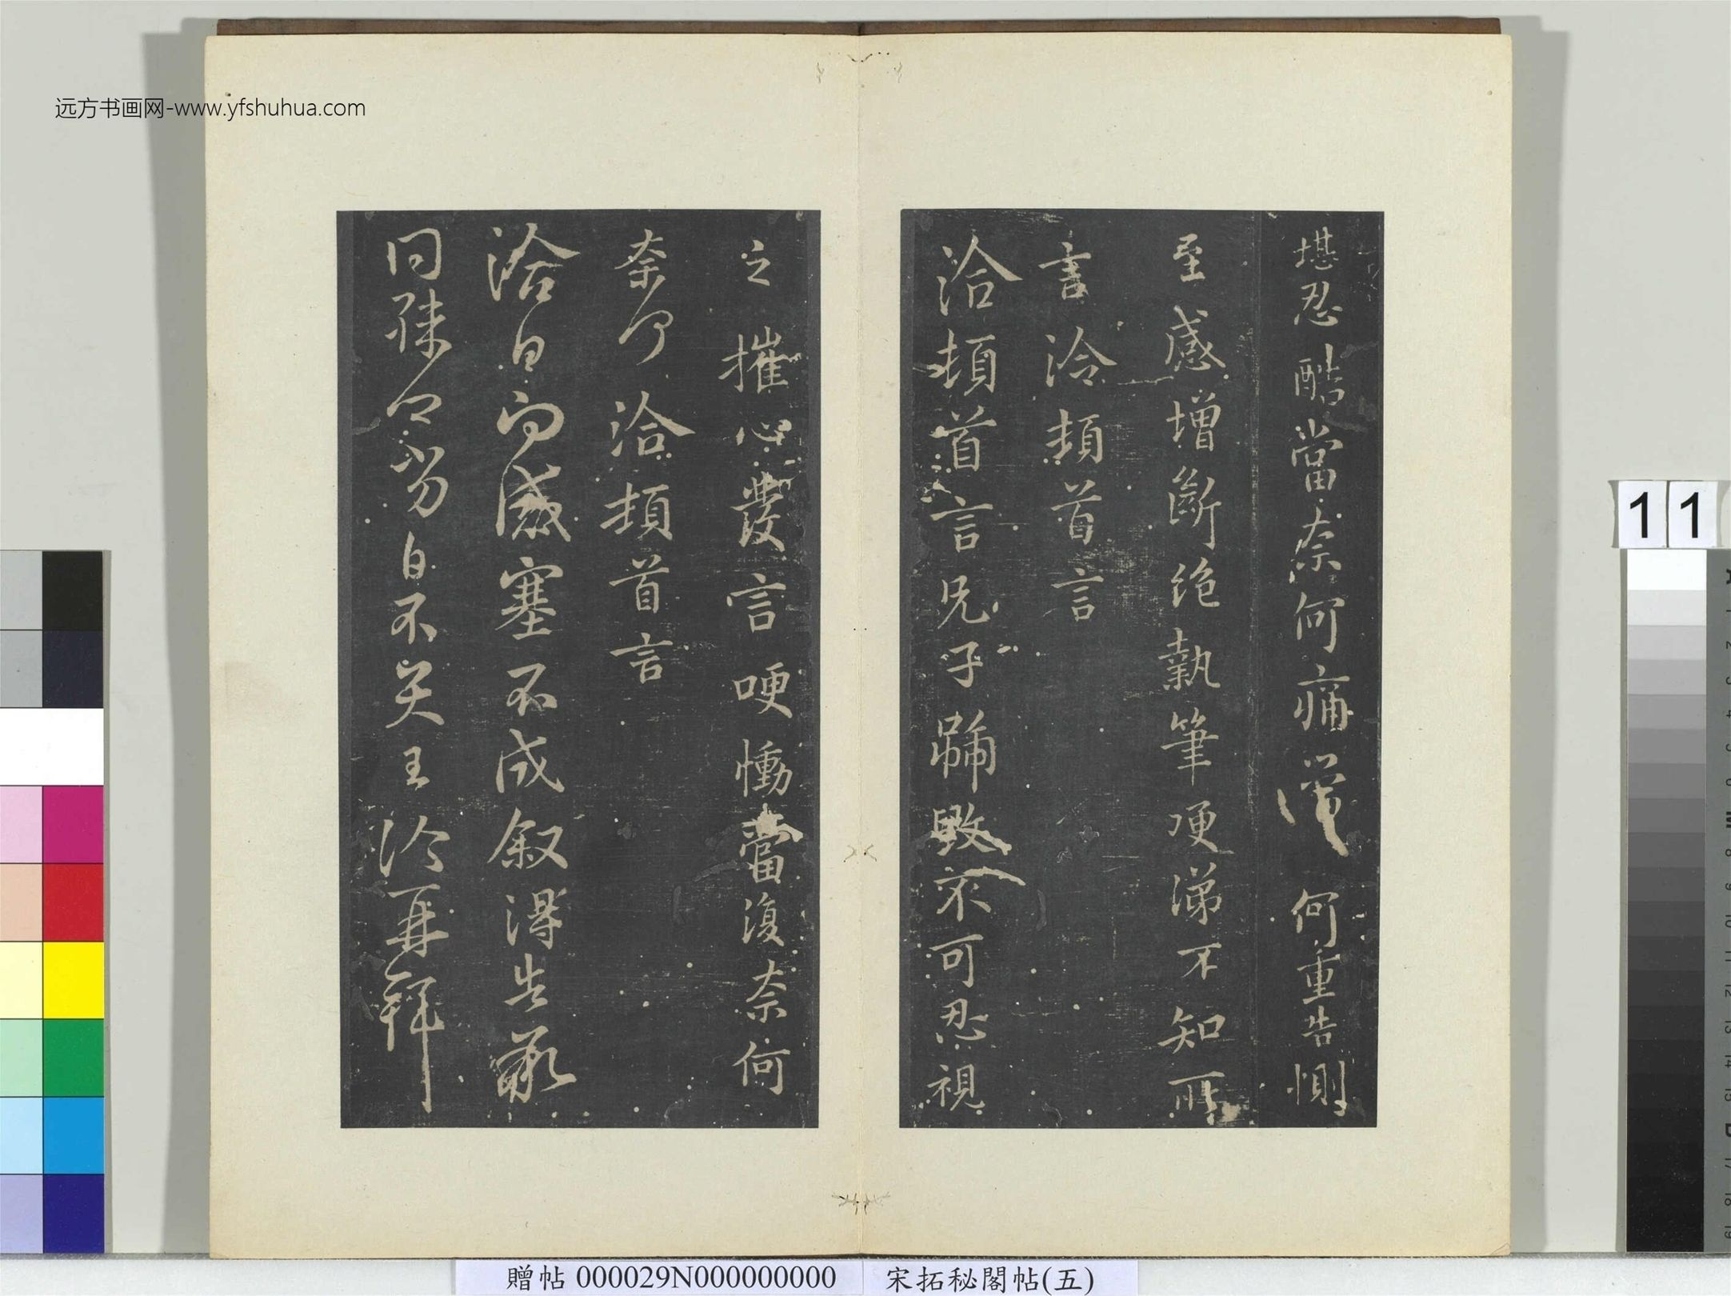 远方书画网-www.yfshuhua.com
堪忍酷當奈何痛 何重告惻
至感增斷絶執筆哽涕不知所
言洽頓首言
洽頓首言兄子號毀不可忍視
之摧心發言哽慟當復奈何
奈何洽頓首言
洽白 感塞不成叙得告承
白不具王洽再拜
11
贈帖 000029N000000000
宋拓秘閣帖(五)